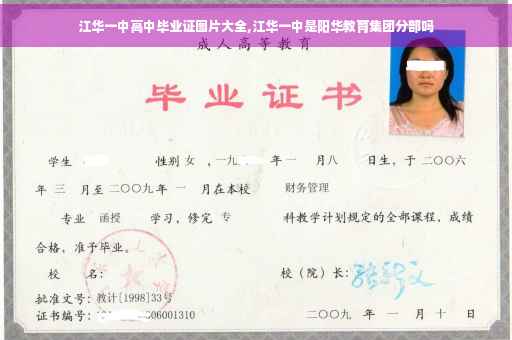 江华一中高中毕业证图片大全,江华一中是阳华教育集团分部吗
成人高等教育
毕业证书
学生 性别 女 ,一九 年 一 月八 日生,于二〇〇六
年 三 月至二〇〇九年 一 月在本校 财务管理
专业 函授 学习,修完 专 科教学计划规定的全部课程,成绩
合格,准予毕业。
校 名: 校(院)长:
批准文号:教计[1998]33号
证书编号: 06001310 二〇〇九 年 一 月 十 日